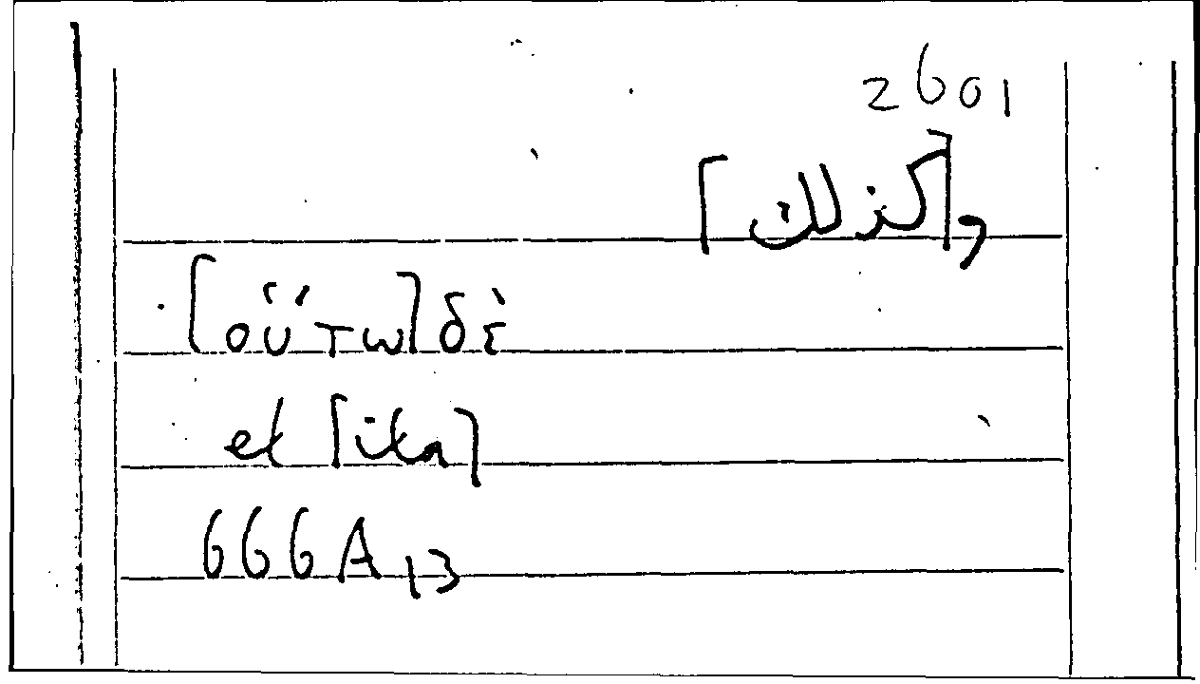 2601
و[كذلك]
[οὕτω] δὲ
et [ita]
666A13